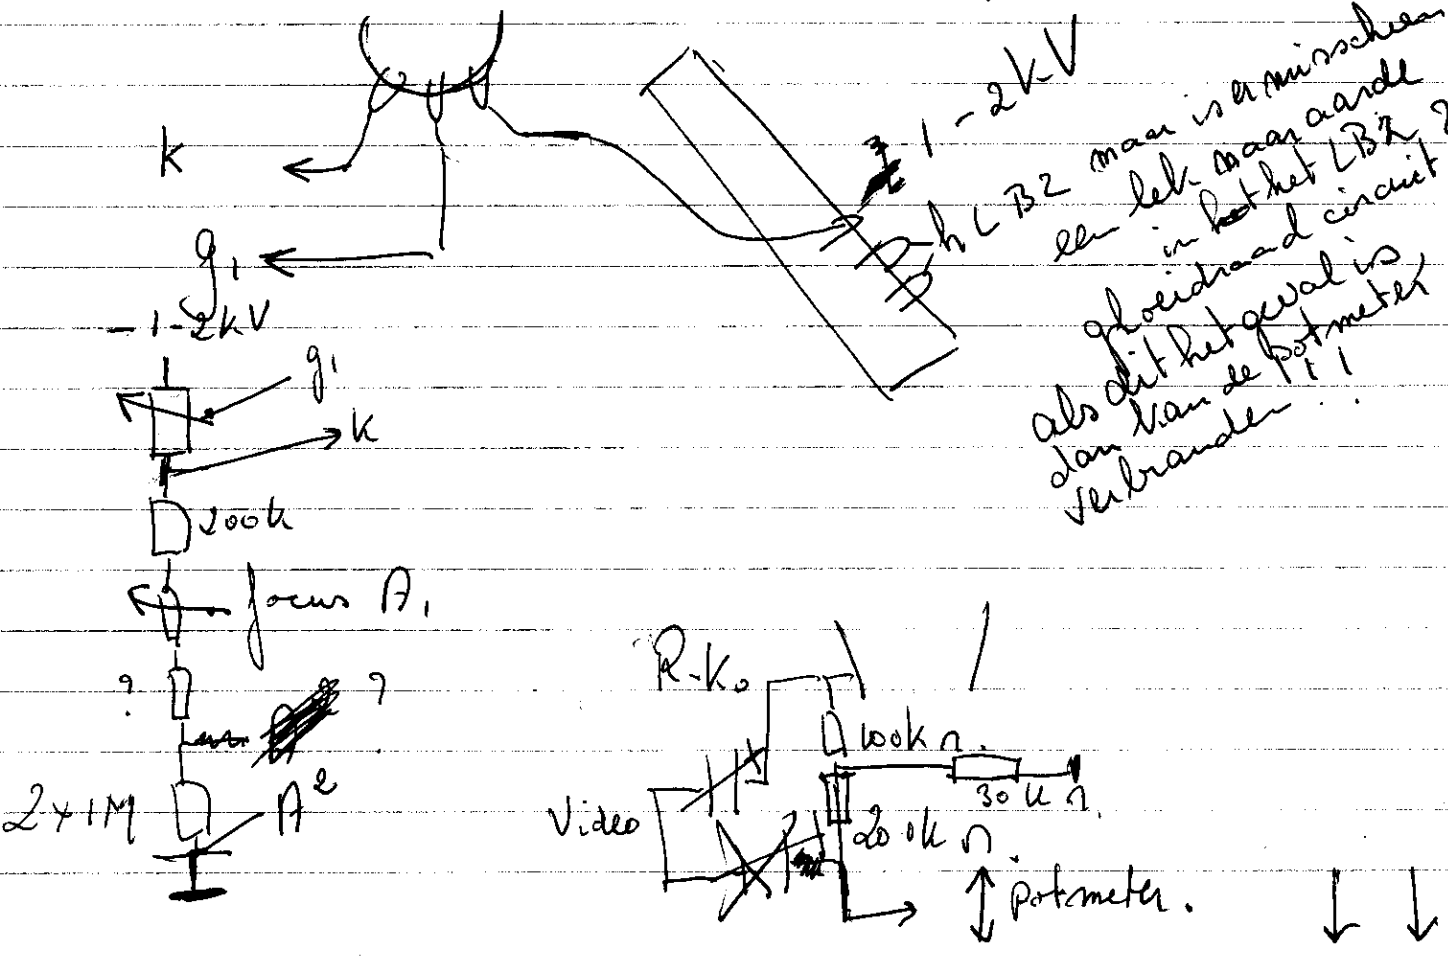 k
g₁
-1-2kV
g₁
k
200k
focus A₁
? ?
2x1M A²
1-2kV
h LB2 maar is er misschien
een lek naar aarde
in het LB2 ?
gloeidraad circuit
als dit het geval is
dan kan de potmeter
verbranden !!
R-Ko
100k Ω.
30k Ω.
Video
200k Ω.
potmeter.